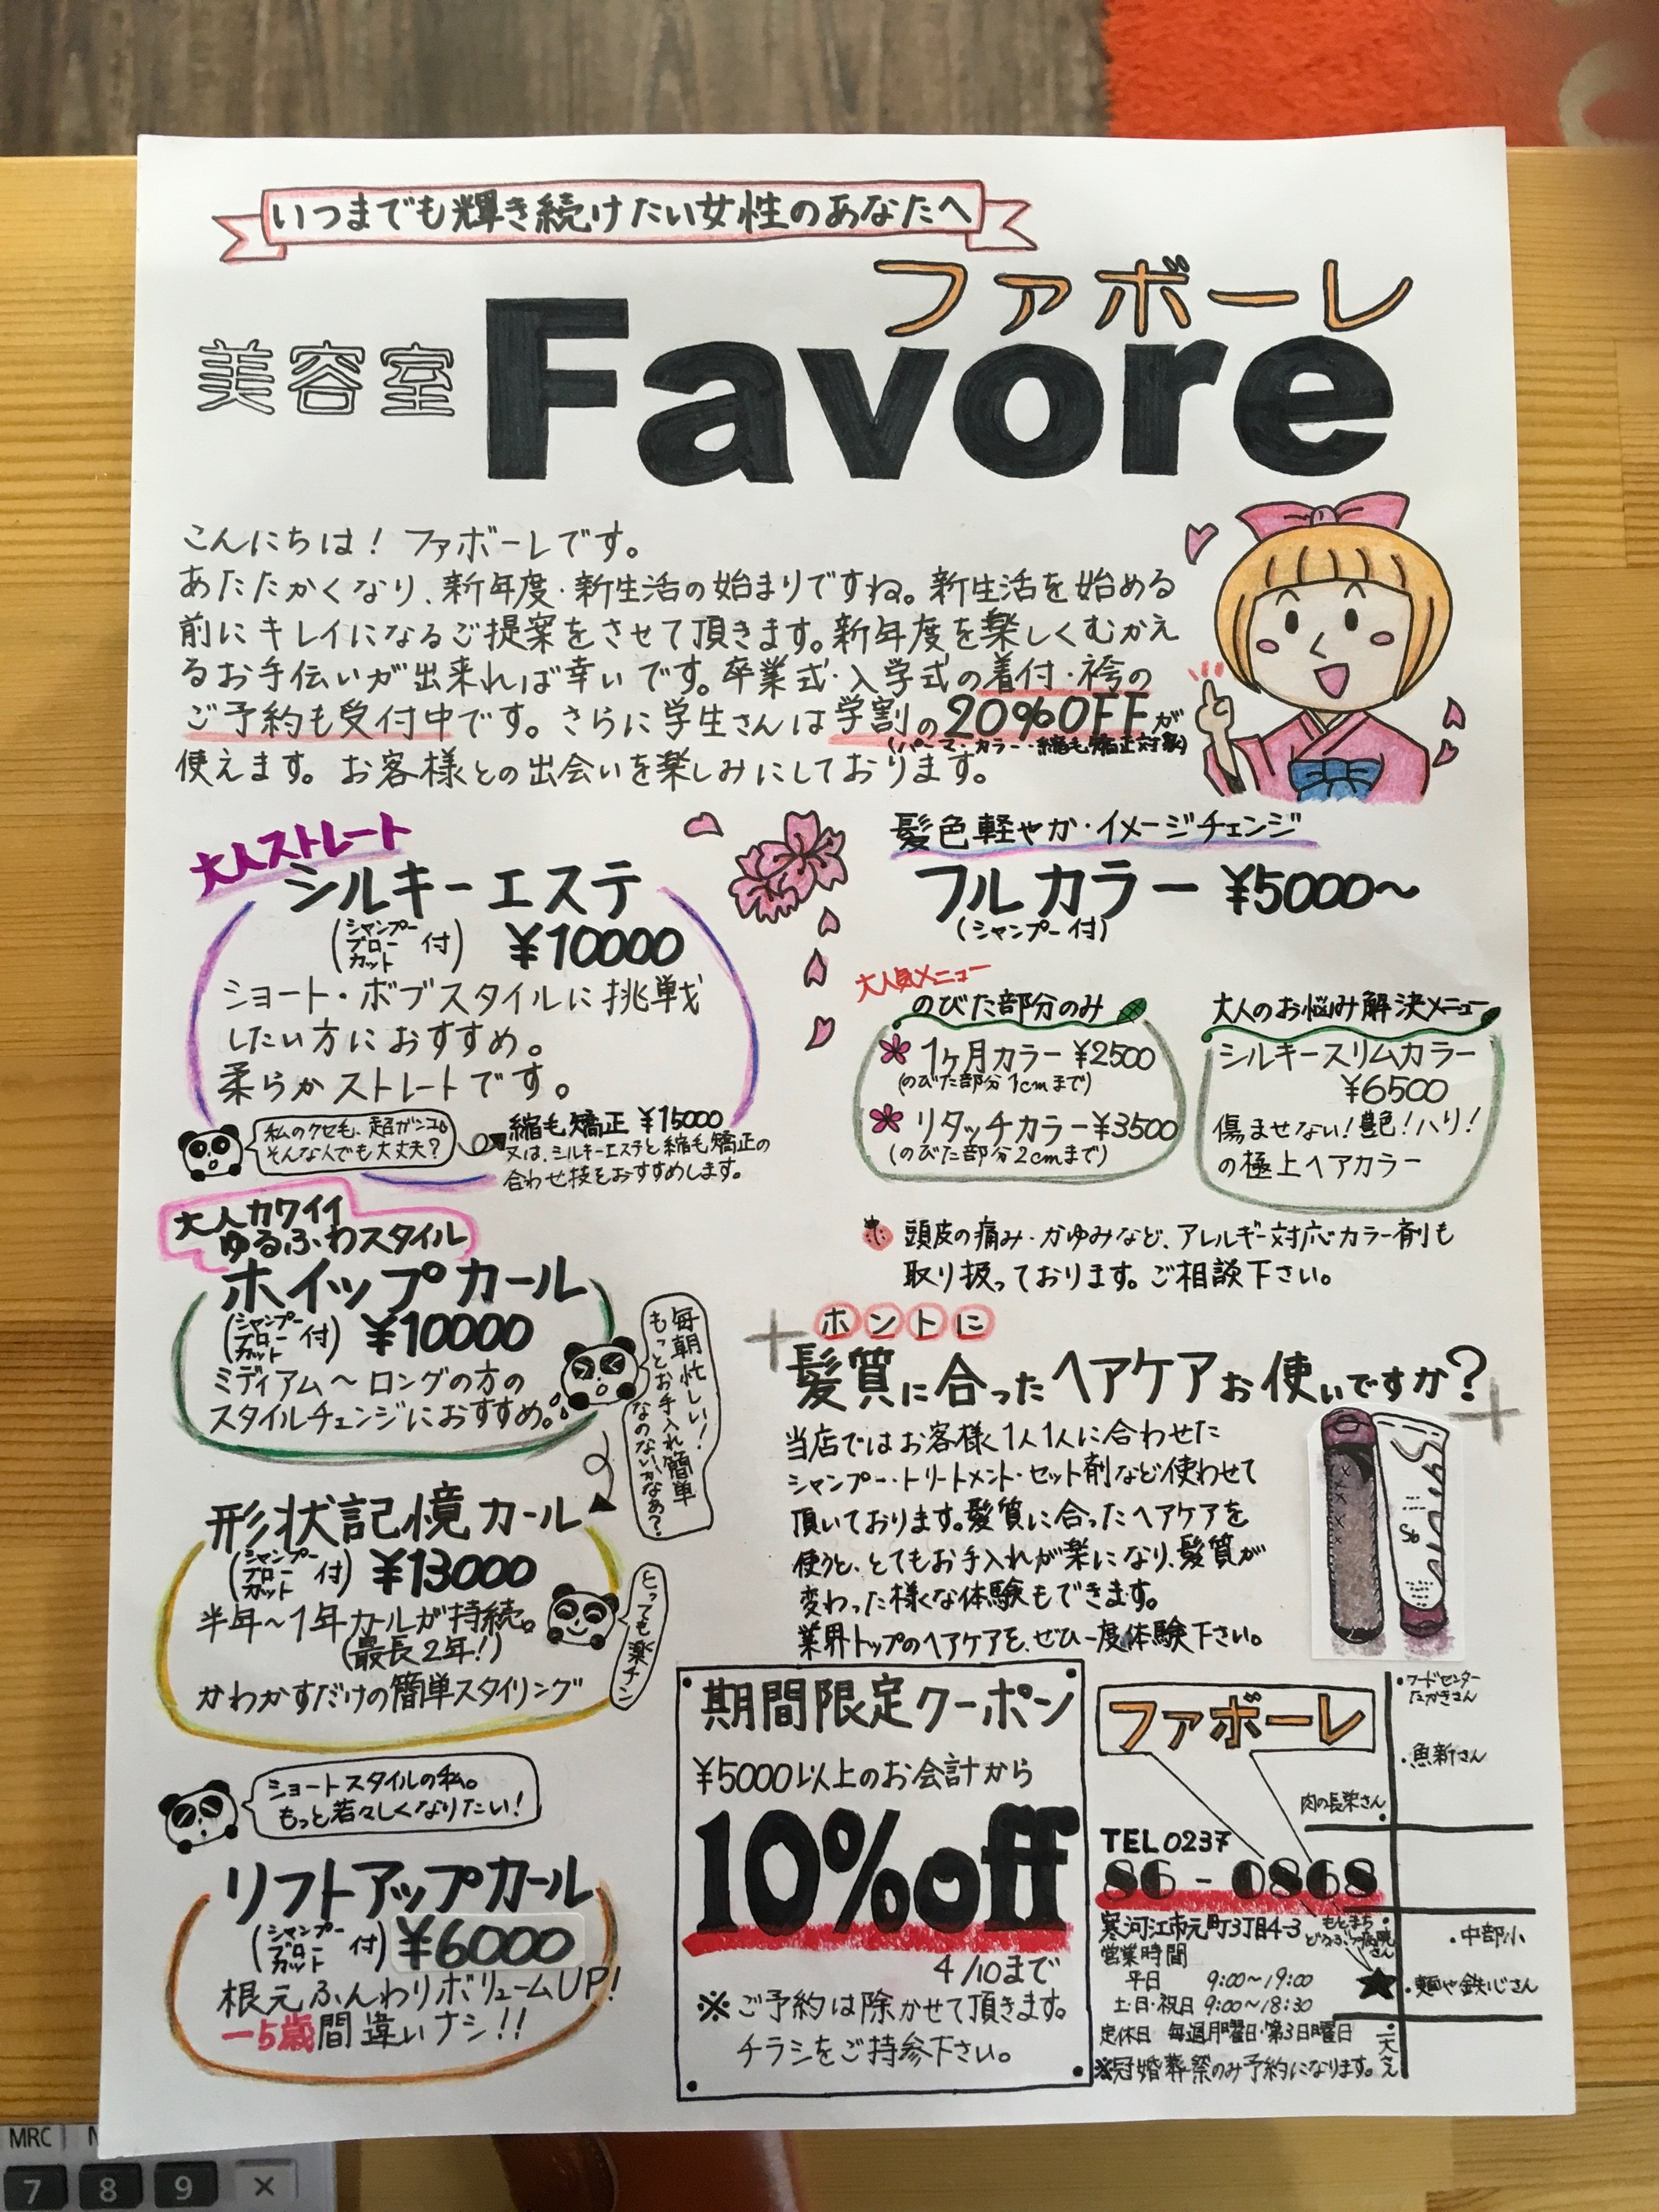 いつまでも輝き続けたい女性のあなたへ
ファボーレ
美容室 Favore
こんにちは！ファボーレです。
あたたかくなり、新年度・新生活の始まりですね。新生活を始める
前にキレイになるご提案をさせて頂きます。新年度を楽しくむかえ
るお手伝いが出来れば幸いです。卒業式・入学式の着付・袴の
ご予約も受付中です。さらに学生さんは学割の20%OFFが
(パーマ・カラー・縮毛矯正対象)
使えます。お客様との出会いを楽しみにしております。
大人ストレート
シルキーエステ
(シャンプー
ブロー
カット 付) ¥10000
ショート・ボブスタイルに挑戦
したい方におすすめ。
柔らかストレートです。
私のクセも、超ガンコ。
そんな人でも大丈夫？
縮毛矯正 ¥15000
又は、シルキーエステと縮毛矯正の
合わせ技をおすすめします。
大人カワイイ
ゆるふわスタイル
ホイップカール
(シャンプー
ブロー
カット 付) ¥10000
ミディアム〜ロングの方の
スタイルチェンジにおすすめ。
毎朝忙しい！
もっとお手入れ簡単
なのないかなぁ？
形状記憶カール
(シャンプー
ブロー
カット 付) ¥13000
半年〜1年カールが持続。
(最長2年！)
かわかすだけの簡単スタイリング
とっても楽チン
ショートスタイルの私。
もっと若々しくなりたい！
リフトアップカール
(シャンプー
ブロー
カット 付) ¥6000
根元ふんわりボリュームUP！
-5歳間違いナシ!!
髪色軽やか・イメージチェンジ
フルカラー ¥5000〜
(シャンプー付)
大人気メニュー
のびた部分のみ
1ヶ月カラー ¥2500
(のびた部分1cmまで)
リタッチカラー¥3500
(のびた部分2cmまで)
大人のお悩み解決メニュー
シルキースリムカラー
¥6500
傷ませない！艶！ハリ！
の極上ヘアカラー
頭皮の痛み・かゆみなど、アレルギー対応カラー剤も
取り扱っております。ご相談下さい。
ホントに
髪質に合ったヘアケアお使いですか？
当店ではお客様1人1人に合わせた
シャンプー・トリートメント・セット剤など使わせて
頂いております。髪質に合ったヘアケアを
使うと、とてもお手入れが楽になり、髪質が
変わった様な体験もできます。
業界トップのヘアケアを、ぜひ一度体験下さい。
期間限定クーポン
¥5000以上のお会計から
10%off
4/10まで
※ご予約は除かせて頂きます。
チラシをご持参下さい。
ファボーレ
TEL0237
86-0868
寒河江市元町3丁目4-3
営業時間
平日 9:00〜19:00
土・日・祝日 9:00〜18:30
定休日 毎週月曜日・第3日曜日
※冠婚葬祭のみ予約になります。
・フードセンター
たかきさん
・魚新さん
肉の長栄さん
もとまち
どうぶつ病院
さん
・中部小
・麺や鉄心さん